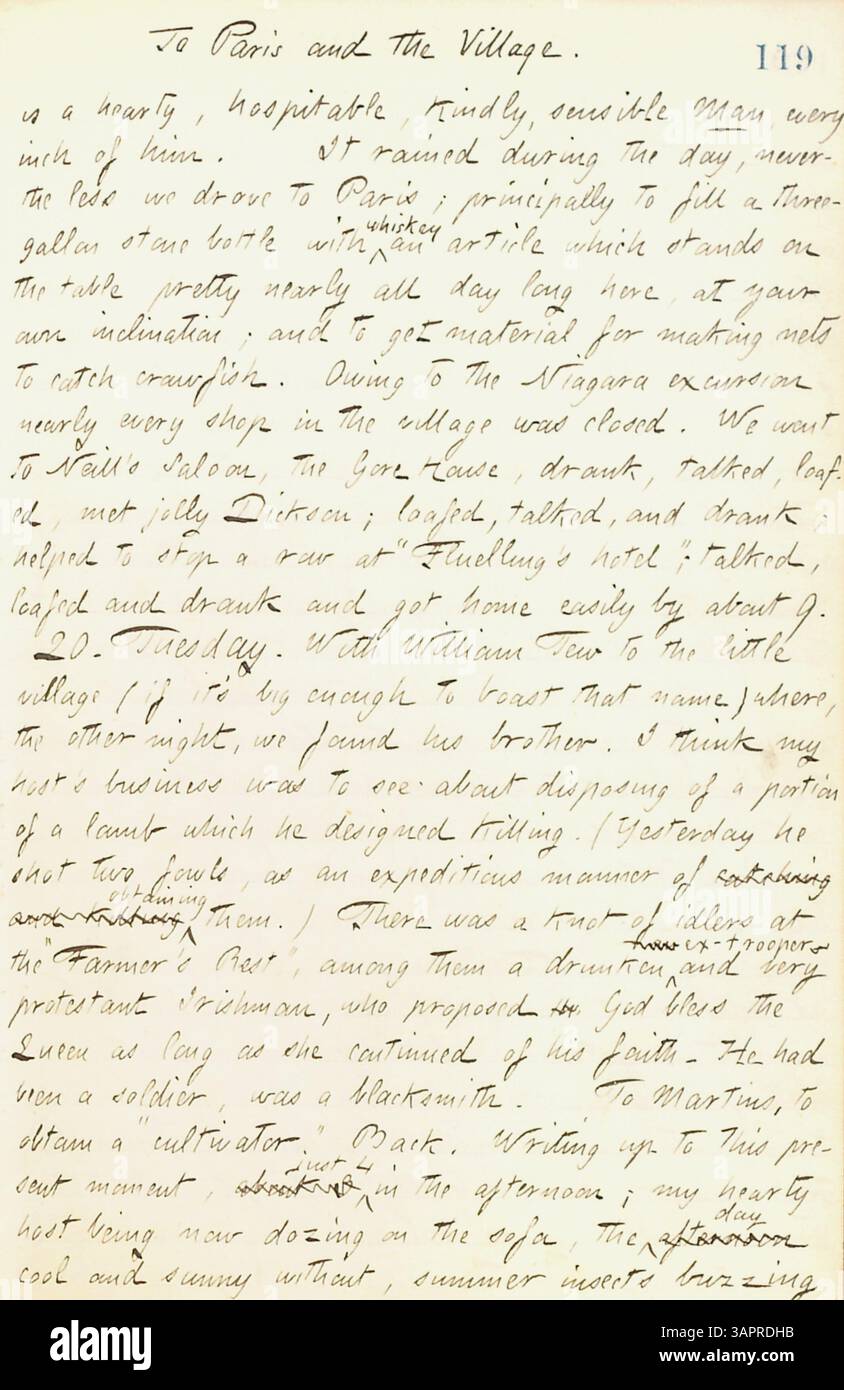 To Paris and the Village.
119
is a hearty, hospitable, kindly, sensible Man, every
inch of him. It rained during the day, never-
the less we drove to Paris; principally to fill a three-
gallon stone bottle with whiskey an article which stands on
the table pretty nearly all day long here, at your
own inclination; and to get material for making nets
to catch crawfish. Owing to the Niagara excursion
nearly every shop in the village was closed. We went
to Neill's Saloon, the Gore House, drank, talked, loaf-
ed, met jolly Dickson; loafed, talked, and drank;
helped to stop a row at "Fluelling's hotel"; talked,
loafed and drank and got home easily by about 9.
20. Tuesday. With William Tew to the little
village (if it's big enough to boast that name) where,
the other night, we found his brother. I think my
host's business was to see about disposing of a portion
of a lamb which he designed killing. (Yesterday he
shot two fowls, as an expeditious manner of catching
and killing obtaining them.) There was a knot of idlers at
the "Farmer's Rest", among them a drunken ex-trooper and very
protestant Irishman, who proposed God bless the
Queen as long as she continued of his faith - He had
been a soldier, was a blacksmith. To Martins, to
obtain a "cultivator." Back. Writing up to this pre-
sent moment, about just 4 in the afternoon; my hearty
host being now dozing on the sofa, the afternoon day
cool and sunny without, summer insects buzzing
alamy
Image ID: 3APRDHB
www.alamy.com